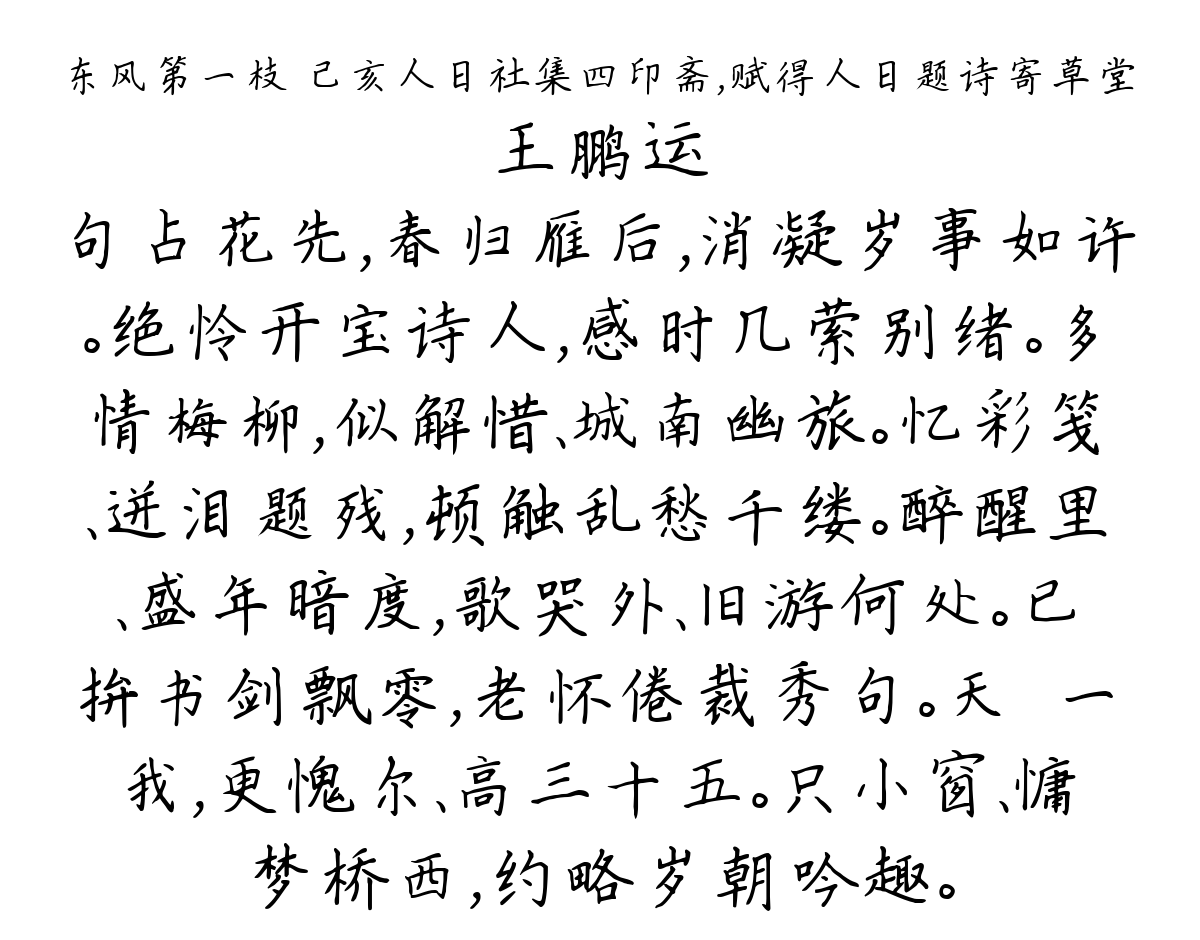 东风第一枝 己亥人日社集四印斋,赋得人日题诗寄草堂
王鹏运
句占花先,春归雁后,消凝岁事如许
。绝怜开宝诗人,感时几萦别绪。多
情梅柳,似解惜、城南幽旅。忆彩笺
、迸泪题残,顿触乱愁千缕。醉醒里
、盛年暗度,歌哭外、旧游何处。已
拚书剑飘零,老怀倦裁秀句。天 一
我,更愧尔、高三十五。只小窗、慵
梦桥西,约略岁朝吟趣。